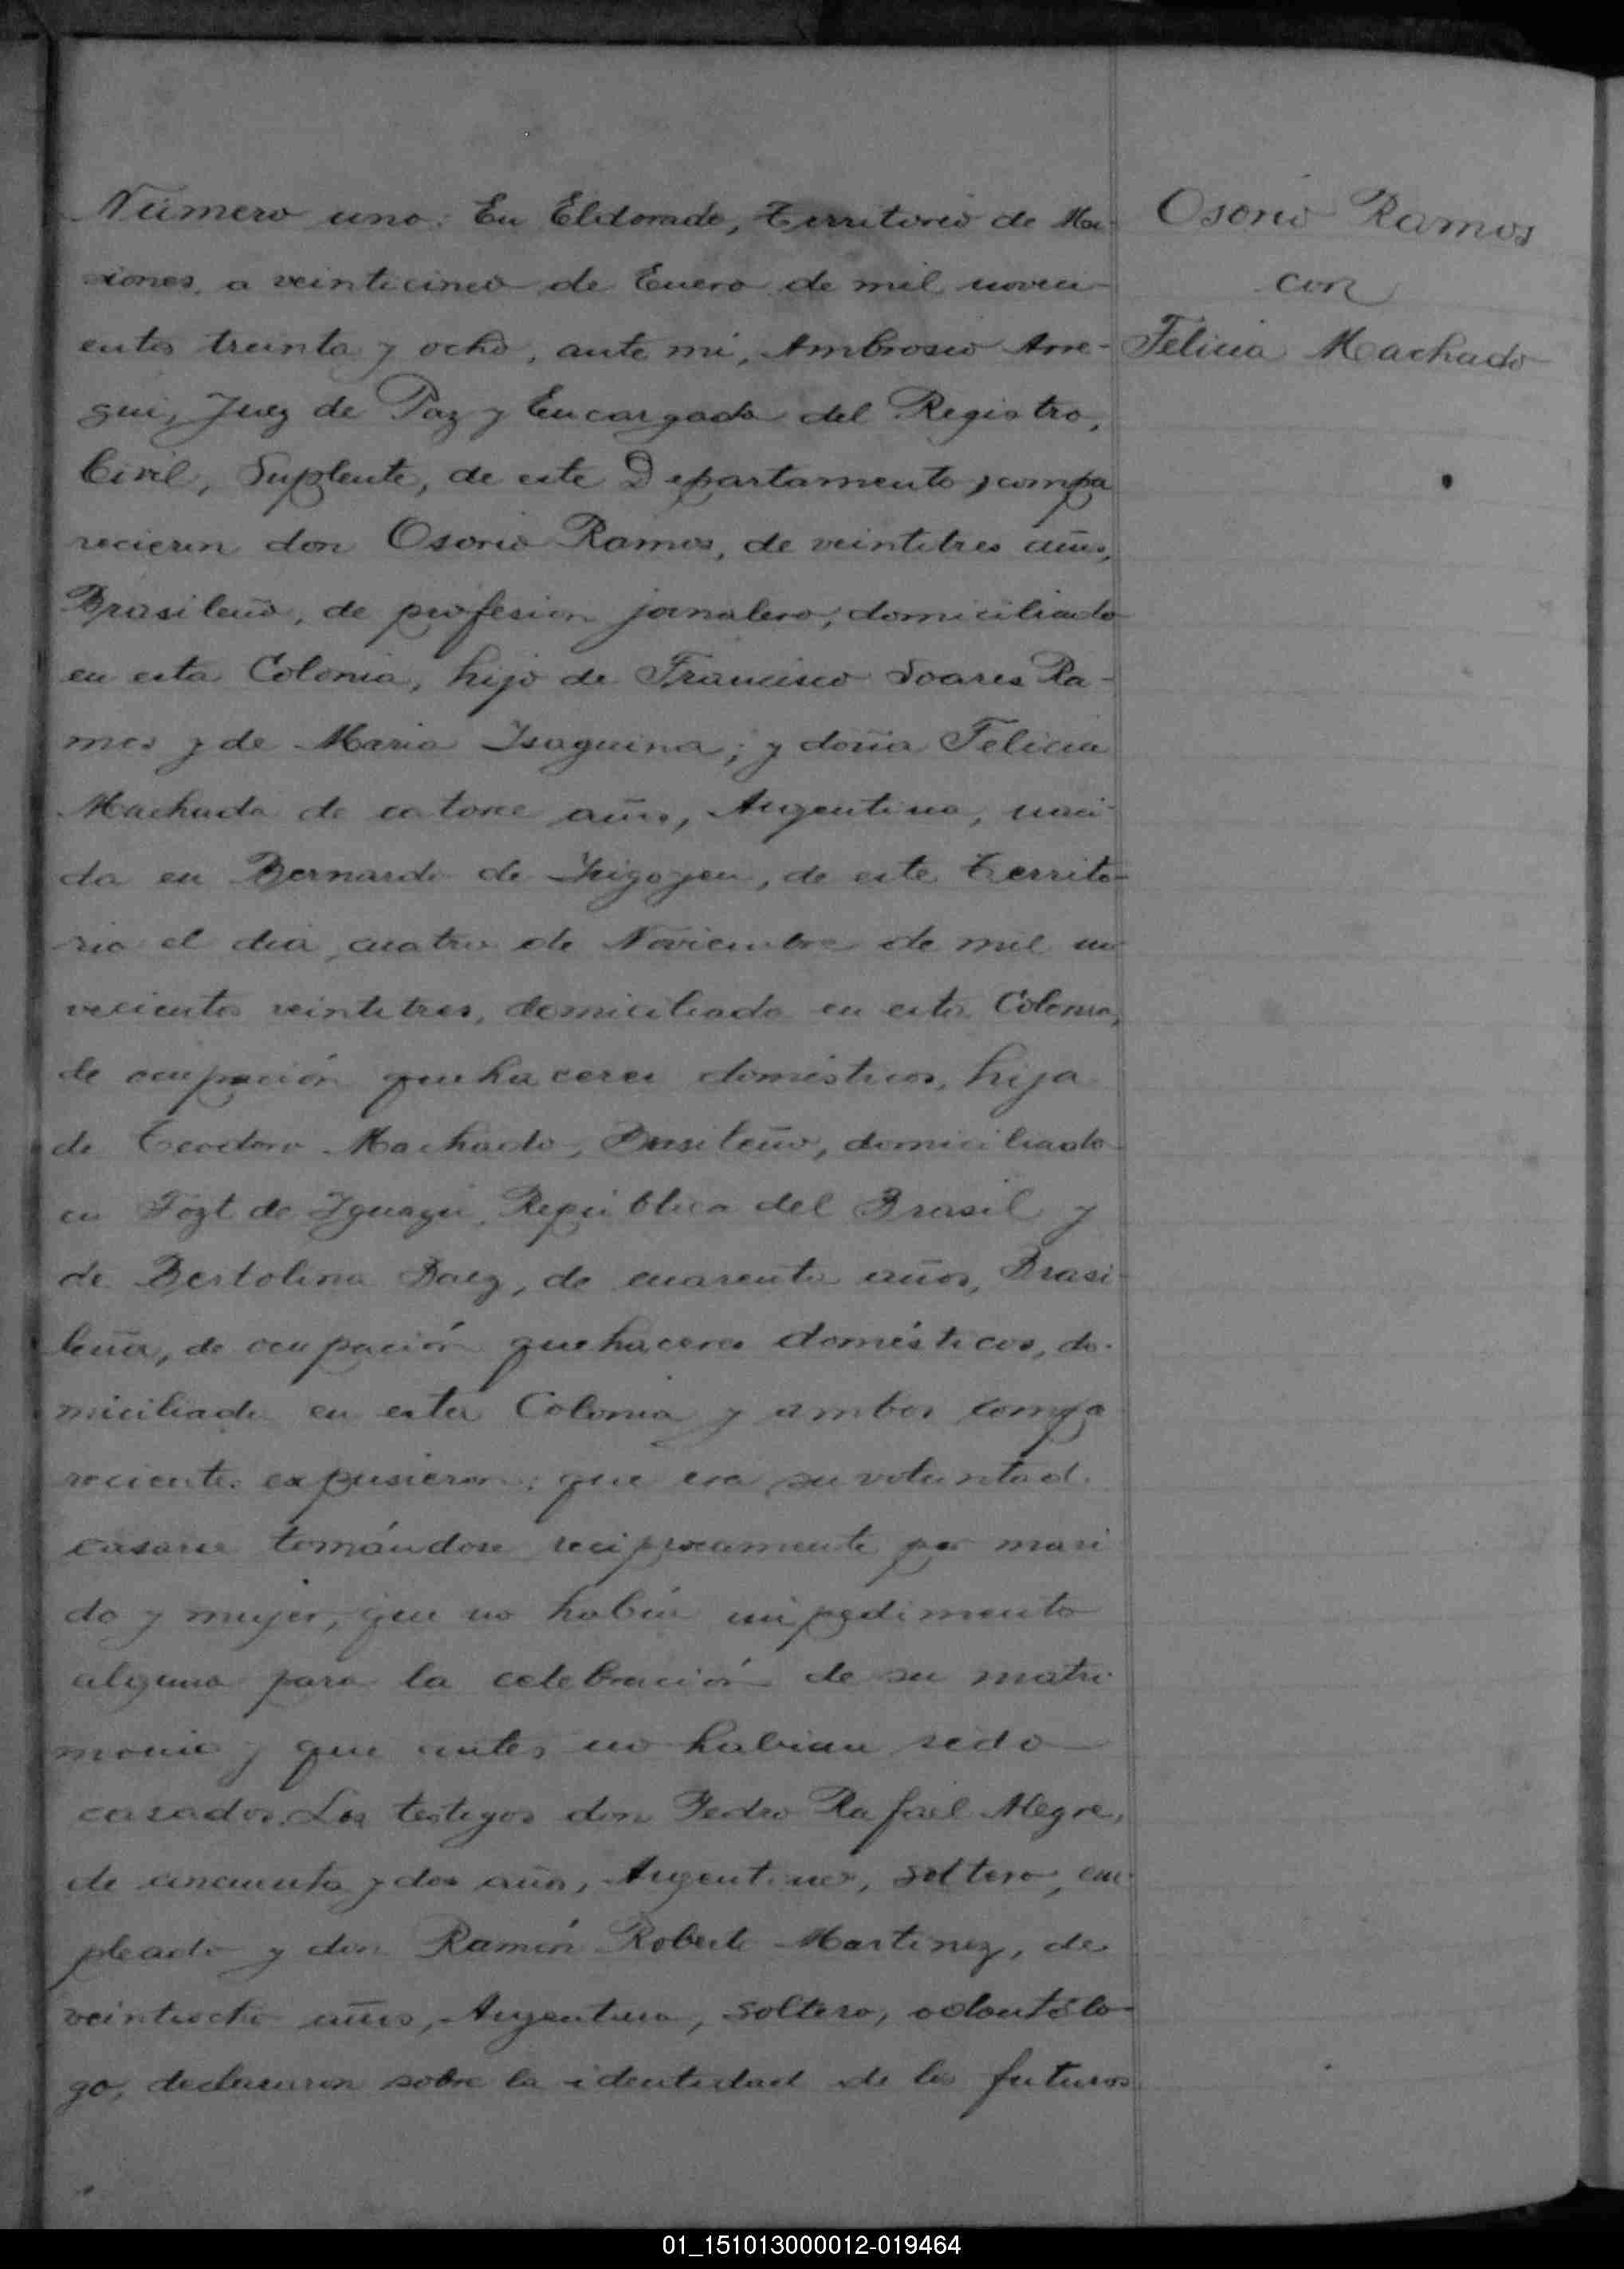 Número uno: En Eldorado, Territorio de Mi-
siones, a veinticinco de Enero de mil noveci-
entos treinta y ocho, ante mi, Ambrosio Arre-
gui, Juez de Paz y Encargado del Registro,
Civil, Suplente, de este Departamento, compa
recieron don Osorio Ramos, de veintitres años,
Brasileño, de profesion jornalero, domiciliado
en esta Colonia, hijo de Francisco Soares Ra-
mos y de Maria Isaquina; y doña Felicia
Machado de catorce años, Argentina, naci-
da en Bernardo de Irigoyen, de este Territo-
rio el dia cuatro de Noviembre de mil no
vecientos veintitres, domiciliada en esta Colonia,
de ocupación quehaceres domésticos, hija
de Teodoro Machado, Brasileño, domiciliado
en Fozt de Iguazú, República del Brasil y
de Bertolina Baez, de cuarenta años, Brasi-
leña, de ocupación quehaceres domésticos, do-
miciliada en esta Colonia y ambos compa
recientes expusieron: que era su voluntad
casarse tomándose reciprocamente por mari
do y mujer, que no había impedimento
alguno para la celebración de su matri-
monio y que antes no habian sido
casados. Los testigos don Pedro Rafael Alegre,
de cincuenta y dos años, Argentino, soltero, em-
pleado y don Ramón Roberto Martinez, de
veintiocho años, Argentino, soltero, odontólo-
go, declararon sobre la identidad de los futuros
Osorio Ramos
con
Felicia Machado
01_151013000012-019464